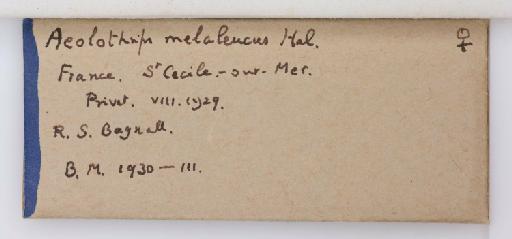 Aeolothrips melaleucus Hal. ♀
France. St Cecile-sur-Mer.
Privet. VIII. 1929.
R. S. Bagnall.
B. M. 1930 — III.